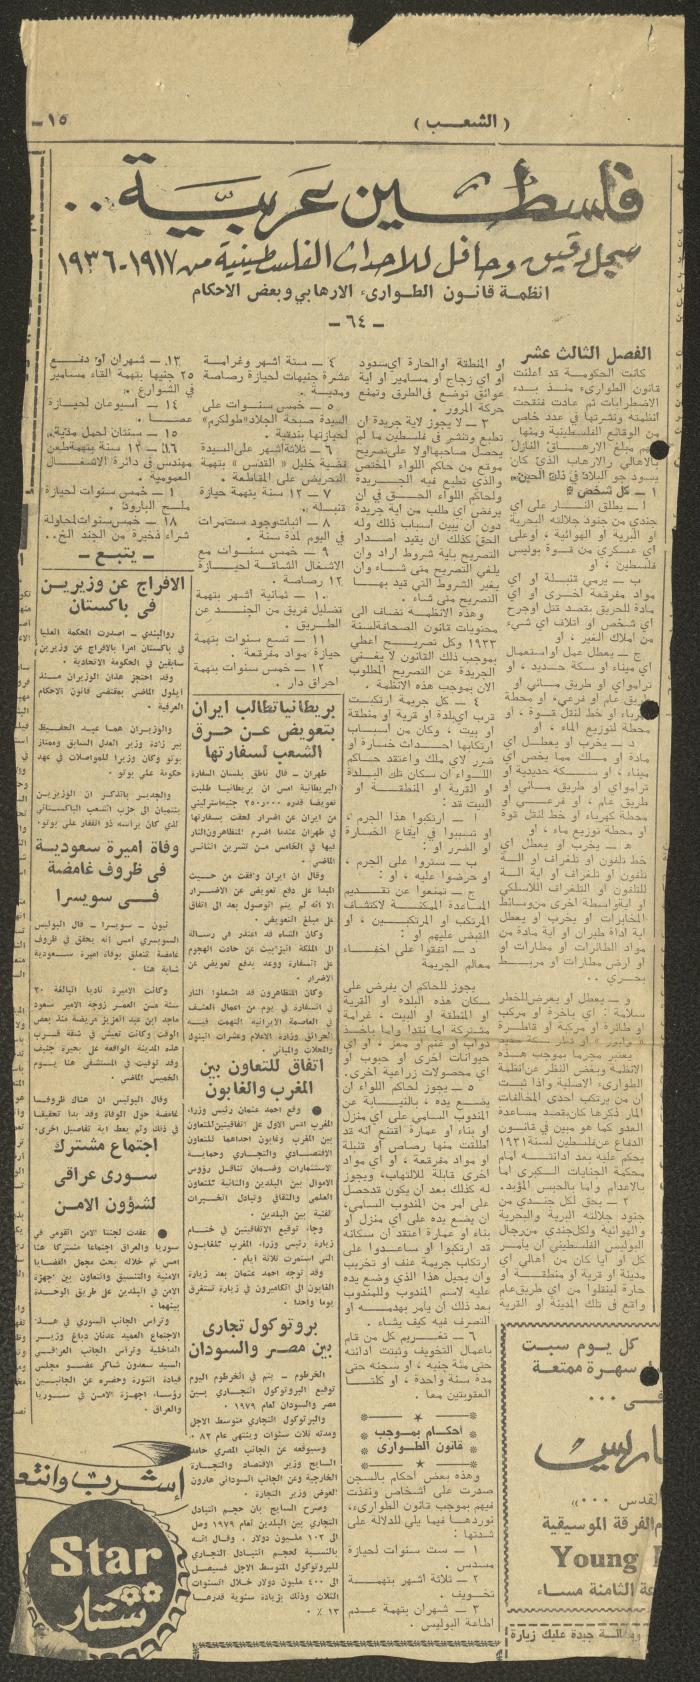 ١٥ —
( الشعـب )
فلسطـين عربيـة ..
سجل دقيق وحافل للاحداث الفلسطينية من ١٩١٧-١٩٣٦
انظمة قانون الطوارىء الارهابي وبعض الاحكام
— ٦٤ —
الفصل الثالث عشر
كانت الحكومة قد اعلنت
قانون الطوارىء منذ بدء
الاضطرابات ثم عادت فنقحت
انظمته ونشرتها في عدد خاص
من الوقائع الفلسطينية ومنها
مبلغ الارهاق النازل
بالاهالي والارهاب الذي كان
يسود جو البلاد في ذلك الحين.
١ — كل شخص :
ا — يطلق النار على اي
جندي من جنود جلالته البرية
او البحرية او الهوائية ، او على
اي عسكري من قوة بوليس
فلسطين ، او
ب — يرمي قنبلة او اي
مواد مفرقعة اخرى او اي
مادة للحريق بقصد قتل او جرح
اي شخص او اتلاف اي شيء
من املاك الغير ، او
ج — يعطل عمل او استعمال
اي ميناء او سكة حديد ، او
ترامواي او طريق مائي او
طريق عام او فرعي، او محطة
كهرباء او خط لنقل قوة ، او
محطة لتوزيع الماء ، او
د — يخرب او يعطل اي
مادة او ملك مما يخص اي
ميناء ، او سكة حديدية او
ترامواي او طريق مائي او
طريق عام ، او فرعي او
محطة كهرباء او خط لنقل قوة
او محطة توزيع ماء ، او
هـ — يخرب او يعطل اي
خط تلفون او تلغراف او الة
تلفون او تلغراف او اية الة
للتلفون او التلغراف اللاسلكي
او اية واسطة اخرى من وسائط
المخابرات او يخرب او يعطل
اية اداة طيران او اية مادة من
مواد الطائرات او مطارات او
او ارض مطارات او مربط
بحري ..
و — يعطل او يعرض للخطر
سلامة : اي باخرة او مركب
او طائرة او مركبة او قاطرة
يعتبر مجرما بموجب هذه
الانظمة وبغض النظر عن انظمة
الطوارىء الاصلية واذا ثبت
ان من يرتكب احدى المخالفات
المار ذكرها كان بقصد مساعدة
العدو كما هو مبين في قانون
الدفاع عن فلسطين لسنة ١٩٣١
يحكم عليه بعد ادانته امام
محكمة الجنايات الكبرى اما
بالاعدام واما بالحبس المؤبد.
٢ — يحق لكل جندي من
جنود جلالته البرية والبحرية
والهوائية ولكل جندي من رجال
البوليس الفلسطيني ان يأمر
كل او ايا كان من اهالي اي
مدينة او قرية او منطقة او
حارة لينقلوا من اي طريق عام
واقع في تلك المدينة او القرية
او المنطقة او الحارة اي سدود
او اي زجاج او مسامير او اية
عوائق توضع في الطرق وتمنع
حركة المرور .
٣ — لا يجوز لاية جريدة ان
تطبع وتنشر في فلسطين ما لم
يحصل صاحبها ولا على تصريح
موقع من حاكم اللواء المختص
والذي تطبع فيه الجريدة
ولحاكم اللواء الحق في ان
يرفض اي طلب من اية جريدة
دون ان يبين اسباب ذلك وله
الحق كذلك ان يقيد اصدار
التصريح باية شروط اراد وان
يلغي التصريح متى شاء وان
يغير الشروط التي قيد بها
التصريح متى شاء .
وهذه الانظمة تضاف الى
محتويات قانون الصحافة لسنة
١٩٣٣ وكل تصريح اعطي
بموجب ذلك القانون لا يغني
الجريدة عن التصريح المطلوب
الان بموجب هذه الانظمة .
٤ — كل جريمة ارتكبت
قرب اي بلدة او قرية او منطقة
او بيت ، وكان من اسباب
ارتكابها احداث خسارة او
ضرر لاي ملك واعتقد حاكم
اللواء ان سكان تلك البلدة
او القرية او المنطقة او
البيت قد :
ا — ارتكبوا هذا الجرم ،
او تسببوا في ايقاع الخسارة
او الضرر او :
ب — ستروا على الجرم ،
او حرضوا عليه ، او :
ج — تمنعوا عن تقديم
المساعدة الممكنة لاكتشاف
المرتكب او المرتكبين ، او
القبض عليهم او :
د — اتفقوا على اخفاء
معالم الجريمة
يجوز للحاكم ان يفرض على
سكان هذه البلدة او القرية
او المنطقة او البيت ، غرامة
مشتركة اما نقدا واما ياخذ
دواب او غنم او معز ، او اي
حيوانات اخرى او حبوب او
اي محصولات زراعية اخرى.
٥ — يجوز لحاكم اللواء ان
يضع يده ، بالنيابة عن
المندوب السامي على اي منزل
او بناء او عمارة اقتنع انه قد
اطلقت منها رصاص او قنبلة
او مواد مفرقعة ، او اي مواد
اخرى قابلة للالتهاب، ويجوز
له كذلك بعد ان يكون قد حصل
على امر من المندوب السامي،
ان يضع يده على اي منزل او
بناء او عمارة اعتقد ان سكانه
قد ارتكبوا او ساعدوا على
ارتكاب جريمة عنف او تخريب
وان يحيل هذا الذي وضع يده
عليه لاسم المندوب وللمندوب
بعد ذلك ان يامر بهدمه او
التصرف فيه كيف يشاء .
٦ — تغريم كل من قام
باعمال التخويف وثبتت ادانته
حتى مئة جنيه ، او سجنه حتى
مدة سنة واحدة ، او كلتا
العقوبتين معا .
احكام بموجب
قانون الطوارى
وهذه بعض احكام بالسجن
صدرت على اشخاص ونفذت
فيهم بموجب قانون الطوارىء،
نوردها فيما يلي للدلالة على
شدتها :
١ — ست سنوات لحيازة
مسدس .
٢ — ثلاثة اشهر بتهمة
تخويف .
٣ — شهران بتهمة عدم
اطاعة البوليس .
٤ — ستة اشهر وغرامة
عشرة جنيهات لحيازة رصاصة
ومدية .
٥ — خمس سنوات على
السيدة صبحة الجلاد «طولكرم»
لحيازتها بندقية .
٦ — ثلاثة اشهر على السيدة
فضية خليل « القدس » بتهمة
التحريض على المقاطعة .
٧ — ١٢ سنة بتهمة حيازة
قنبلة .
٨ — اثبات وجود ست مرات
في اليوم لمدة سنة .
٩ — خمس سنوات مع
الاشغال الشاقة لحيازة
١٢ رصاصة .
١٠ — ثمانية اشهر بتهمة
تضليل فريق من الجند عن
الطريق .
١١ — تسع سنوات بتهمة
حيازة مواد مفرقعة .
١٢ — خمس سنوات بتهمة
احراق دار .
١٣ — شهران او دفع
٢٥ جنيها بتهمة القاء مسامير
في الشوارع .
١٤ — اسبوعان لحيازة
عصا .
١٥ — سنتان لحمل مدية .
١٦ — ١٢ سنة بتهمة طعن
مهندس في دائرة الاشغال
العمومية .
— خمس سنوات لحيازة
ملح البارود .
١٨ — خمس سنوات لمحاولة
شراء ذخيرة من الجند الخ..
— يتبع —
بريطانيا تطالب ايران
بتعويض عن حرق
الشعب لسفارتها
طهران — قال ناطق بلسان السفارة
البريطانية امس ان بريطانيا طلبت
تعويضا قدره ٣٥٠.٠٠٠ جنيه استرليني
من ايران عن اضرار لحقت بسفارتها
في طهران عندما اضرم المتظاهرون النار
فيها في الخامس من تشرين الثاني
الماضي .
وقال ان ايران وافقت من حيث
المبدا على دفع تعويض عن الاضرار
الا انه لم يتم التوصل بعد الى اتفاق
على مبلغ التعويض .
وكان الشاه قد اعتذر في رسالة
الى الملكة اليزابيث عن حادث الهجوم
على السفارة ووعد بدفع تعويض عن
الاضرار .
وكان المتظاهرون قد اشعلوا النار
في السفارة في يوم من اعمال العنف
في العاصمة الايرانية التهمت فيه
الحرائق وزارة الاعلام وعشرات البنوك
والمحلات والمباني .
اتفاق للتعاون بين
المغرب والغابون
● وقع احمد عثمان رئيس وزراء
المغرب امس الاول على اتفاقيتين للتعاون
بين المغرب وغابون احداهما للتعاون
الاقتصادي والتجاري وحماية
الاستثمارات وضمان تناقل رؤوس
الاموال بين البلدين والثانية للتعاون
العلمي والثقافي وتبادل الخبرات
الفنية بين البلدين .
وجاء توقيع الاتفاقيتين في ختام
زيارة رئيس وزراء المغرب للغابون
التي استمرت ثلاثة ايام .
وقد توجه احمد عثمان بعد زيارة
الغابون الى الكاميرون في زيارة تستغرق
يوما واحدا .
بروتوكول تجارى
بين مصر والسودان
الخرطوم — يتم في الخرطوم اليوم
توقيع البروتوكول التجاري بين
مصر والسودان لعام ١٩٧٩ .
والبرتوكول التجاري متوسط الاجل
ومدته ثلاث سنوات وينتهي عام ٨٣ .
وسيوقعه عن الجانب المصري حامد
السايح وزير الاقتصاد والتجارة
الخارجية وعن الجانب السوداني هارون
العوض وزير التجارة .
وصرح السايح بان حجم التبادل
التجاري بين البلدين لعام ١٩٧٩ وصل
الى ١٠٢ مليون دولار . وقال انه
بالنسبة لحجم التبادل التجاري
للبروتوكول المتوسط الاجل فسيصل
الى ٤٠٠ مليون دولار خلال السنوات
الثلاث وذلك بزيادة سنوية قدرها
١٣ ٪ .
الافراج عن وزيرين
فى باكستان
روالبندي — اصدرت المحكمة العليا
في باكستان امرا بالافراج عن وزيرين
سابقين في الحكومة الاتحادية .
وقد احتجز هذان الوزيران منذ
ايلول الماضي بمقتضى قانون الاحكام
العرفية .
والوزيران هما عبد الحفيظ
بير زادة وزير العدل السابق وممتاز
بوتو وكان وزيرا للمواصلات في عهد
حكومة علي بوتو .
والجدير بالذكر ان الوزيرين
ينتميان الى حزب الشعب الباكستاني
الذي كان يراسه ذو الفقار علي بوتو.
وفاة اميرة سعودية
فى ظروف غامضة
فـى سويسرا
نيون — سويسرا — قال البوليس
السويسري امس انه يحقق في ظروف
غامضة تتعلق بوفاة اميرة سعودية
شابة هنا .
وكانت الاميرة ناديا البالغة ٢٠
سنة من العمر زوجة الامير سعود
ماجد ابن عبد العزيز مريضة منذ بعض
الوقت وكانت تعيش في شقة قرب
هذه المدينة الواقعة على بحيرة جنيف
وقد توفيت في المستشفى هنا يوم
الخميس الماضي .
وقال البوليس ان هناك ظروفا
غامضة حول الوفاة وقد بدا تحقيقا
في ذلك ولم يعط اية تفاصيل اخرى.
اجتماع مشترك
سورى عراقى
لشؤون الامن
● عقدت لجنتا الامن القومي في
سوريا والعراق اجتماعا مشتركا هنا
امس تم خلاله بحث مجمل القضايا
الامنية والتنسيق والتعاون بين اجهزة
الامن في البلدين على طريق الوحدة
بينهما .
وتراس الجانب السوري في هذا
الاجتماع العميد عدنان دباغ وزير
الداخلية وتراس الجانب العراقي
السيد سعدون شاكر عضو مجلس
قيادة الثورة وحضره عن الجانبين
رؤساء اجهزة الامن في سوريا
والعراق .
إشرب وانتعـ
Star
ستار
كل يوم سبت
سهرة ممتعة
فـى ...
باريس
القدس ...»
الفرقة الموسيقية
Young
الثامنة مساء
جيدة عليك زيارة